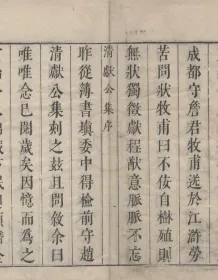 成都守詹君牧甫送於江滸勞
苦問狀牧甫曰不佞自樹殖則
無狀獨徵獻程猷意脈脈不忘
清獻公集序
昨從簿書填委中得檢前守趙
清獻公集刻之茲且問敘余曰
唯唯念已閱歲矣因憶而爲之